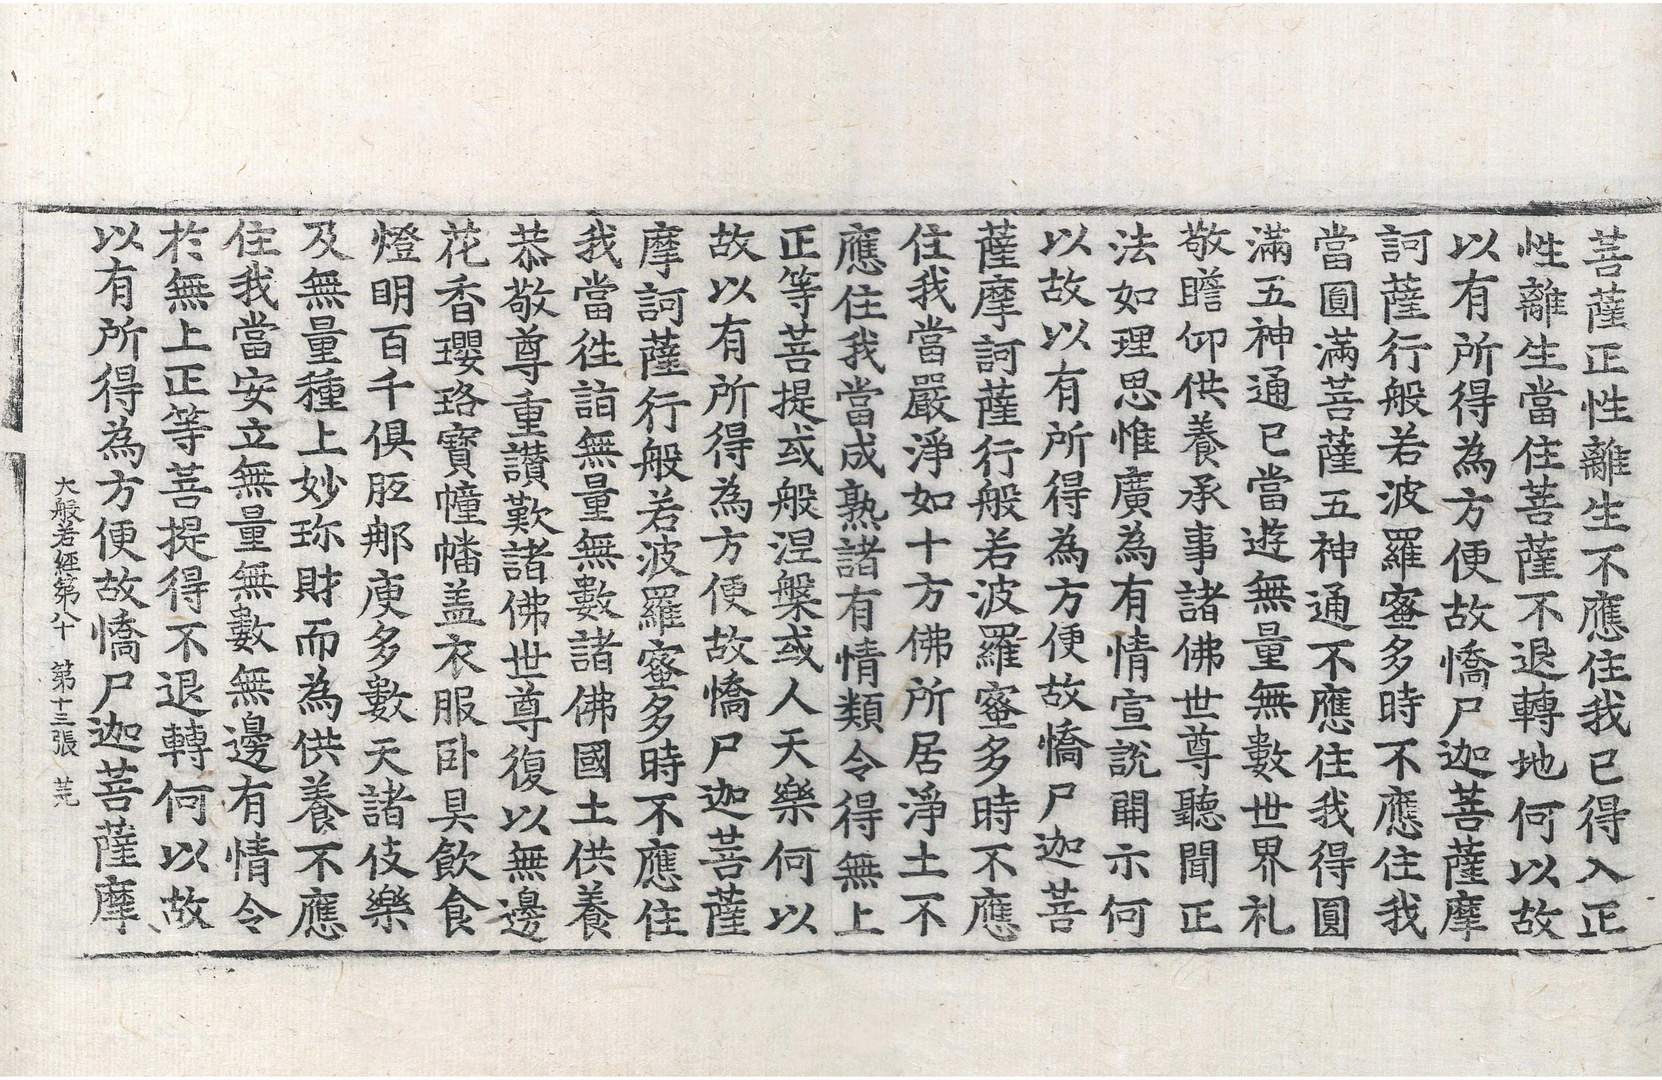 菩薩正性離生不應住我已得入正
性離生當住菩薩不退轉地何以故
以有所得為方便故憍尸迦菩薩摩
訶薩行般若波羅蜜多時不應住我
當圓滿菩薩五神通不應住我得圓
滿五神通已當遊無量無數世界礼
敬瞻仰供養承事諸佛世尊聽聞正
法如理思惟廣為有情宣說開示何
以故以有所得為方便故憍尸迦菩
薩摩訶薩行般若波羅蜜多時不應
住我當嚴淨如十方佛所居淨土不
應住我當成熟諸有情類令得無上
正等菩提或般涅槃或人天樂何以
故以有所得為方便故憍尸迦菩薩
摩訶薩行般若波羅蜜多時不應住
我當往詣無量無數諸佛國土供養
恭敬尊重讚歎諸佛世尊復以無邊
花香瓔珞寶幢幡盖衣服卧具飲食
燈明百千俱胝那庾多數天諸伎樂
及無量種上妙珎財而為供養不應
住我當安立無量無數無邊有情令
於無上正等菩提得不退轉何以故
以有所得為方便故憍尸迦菩薩摩
大般若經第八十 第十三張 荒